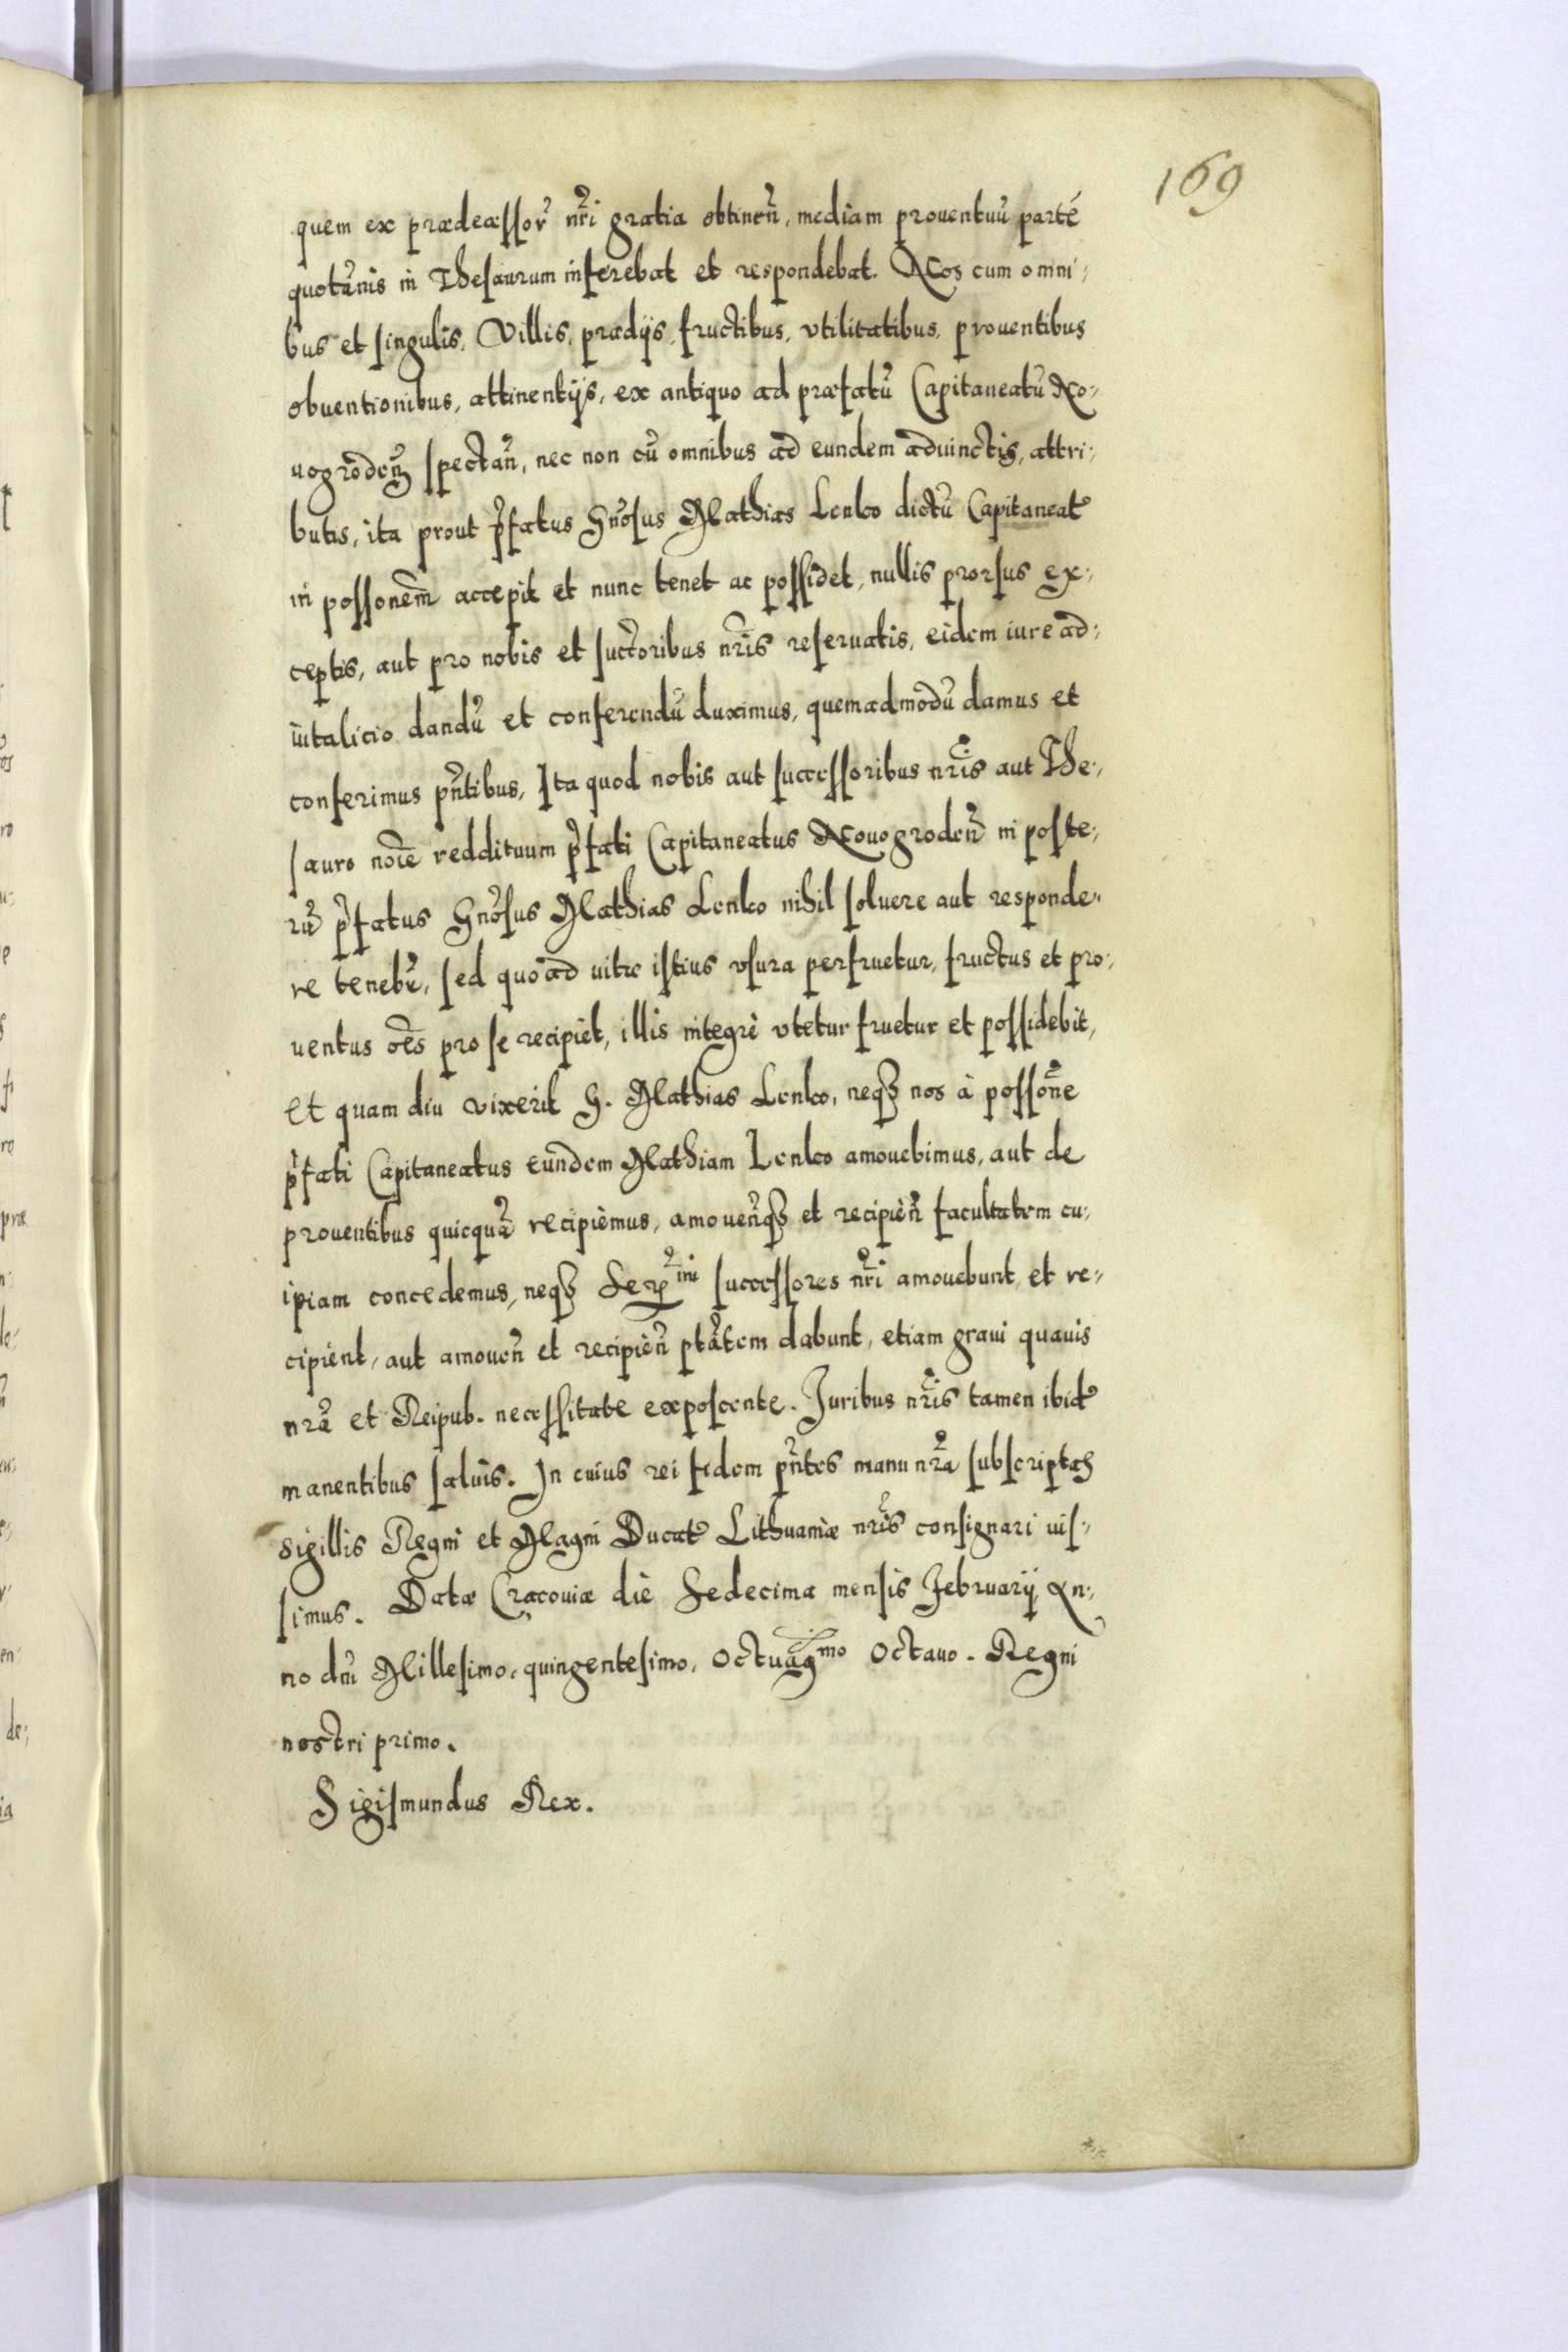 169
quem ex prædecessor̃ nr̃i gratia obtineñ, mediam prouentuũ parté
quotannis in Thesaurum inferebat et respondebat. Nos cum omni:
bus et singulis, Villis, prædijs, fructibus, vtilitatibus, prouentibus
obuentionibus, attinentijs, ex antiquo ad præfatũ Capitaneatũ No:
uogrodeñ spectañ, nec non cũ omnibus ad eundem aduinctis, attri:
butis, ita prout p̃fatus Gnõsus Mathias Lenko dictũ Capitaneat̃
in possonẽm accepit et nunc tenet ac possidet, nullis prorsus ex:
ceptis, aut pro nobis et succ̃oribus nr̃is reseruatis, eidem iure ad:
uitalicio dandũ et conferendũ duximus, quemadmodũ damus et
conferimus pñtibus, Ita quod nobis aut successoribus nr̃is aut The:
sauro noĩe reddituum p̃fati Capitaneatus Nouogrodeñ in poste:
rũ p̃fatus Gnõsus Mathias Lenko nihil soluere aut responde:
re tenebr̃, sed quoad uitæ istius vsura perfruetur, fructus et pro:
uentus oẽs pro se recipiet, illis integrè vtetur fruetur et possidebit,
Et quam diu vixerit G. Mathias Lenko, neqȝ nos à possoñe
p̃fati Capitaneatus eundem Mathiam Lenko amouebimus, aut de
prouentibus quicquã recipiemus, amoueñqȝ et recipieñ facultatem cu:
ipiam concedemus, neqȝ Ser̃mi successores nr̃i amouebunt, et re:
cipient, aut amoueñ et recipieñ ptãtem dabunt, etiam graui quauis
nrã et Reipub. necessitate exposcente. Juribus nr̃is tamen ibid̃
manentibus saluis. In cuius rei fidem pñtes manu nrã subscriptas
sigillis Regni et Magni Ducat̃ Lithuaniæ nr̃is consignari uis:
simus. Datæ Cracouiæ die Sedecima mensis February, An:
no dñi Millesimo, quingentesimo, Octuag̃mo Octauo. Regni
nostri primo.
Sigismundus Rex.